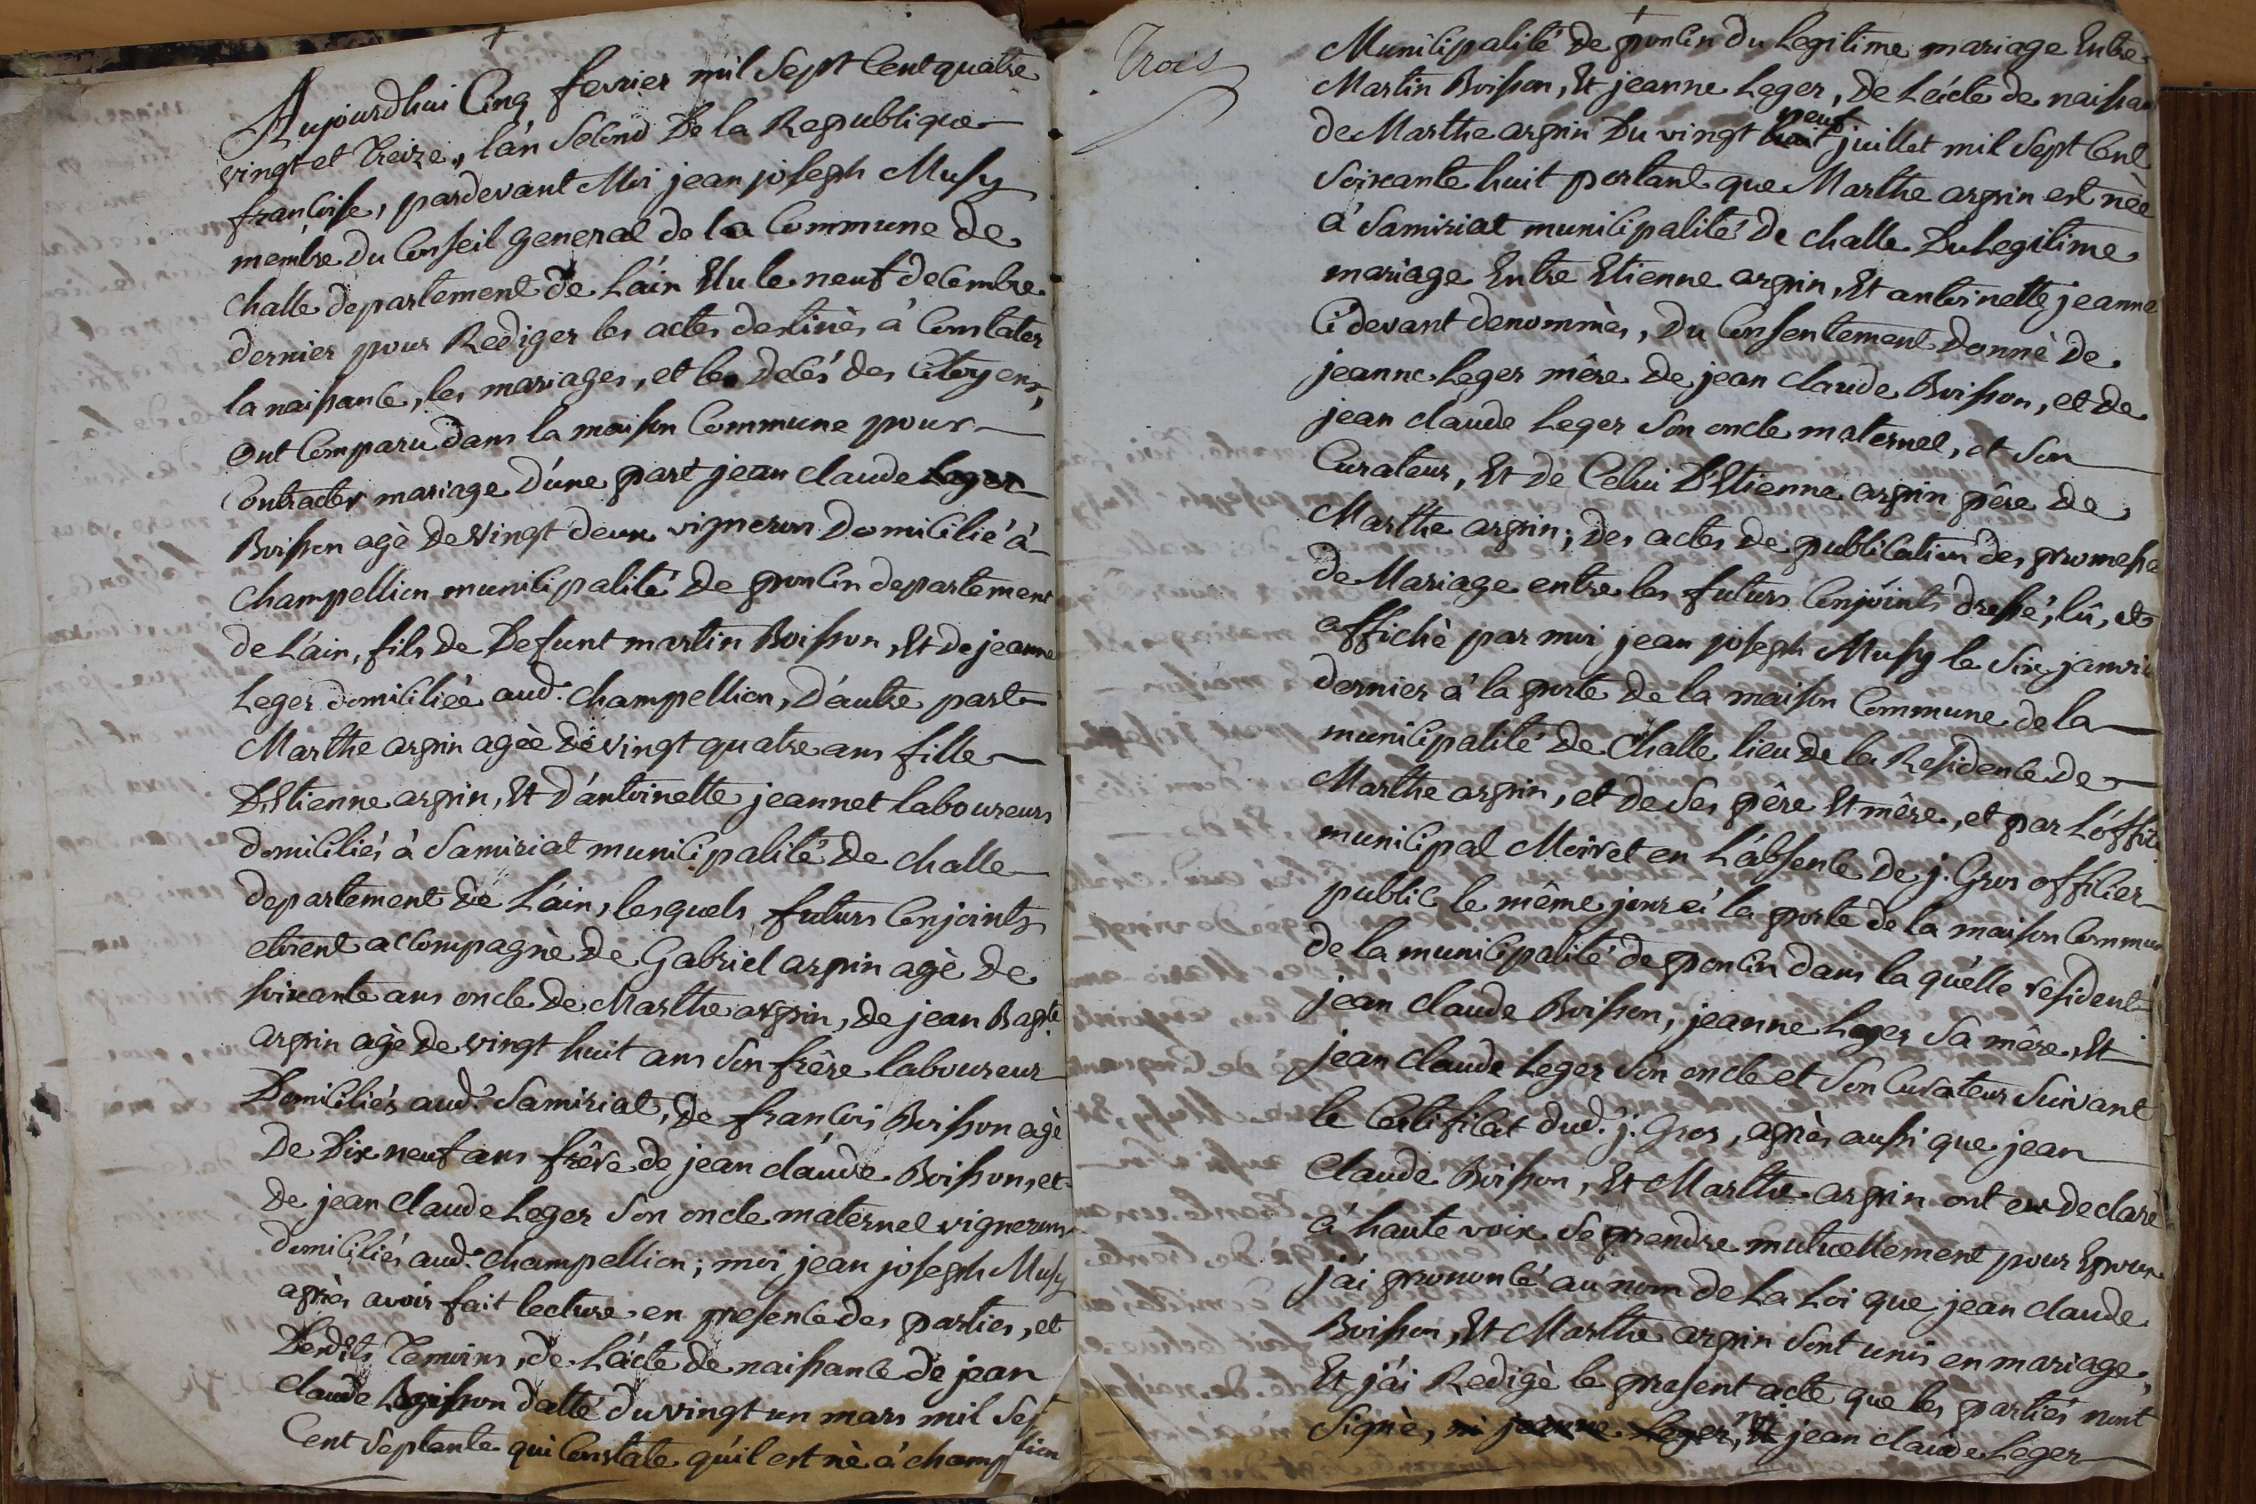 Aujourdhui Cinq fevrier mil Sept Cent quatre
vingt et Treize, l'an Second De la Republique
francoise, pardevant Moi jean joseph Musy
membre Du Conseil general de la Commune de
challe departement de L'ain Elu le neuf decembre
dernier pour Rediger les actes destinès à Constater
la naissance, les mariages, et les decés des Citoyens,
ont Comparu dans la maison Commune pour
Contracter mariage d'une part jean claude Leger
Boisson agè de vingt deux vigneron Domicilié à
champellion municipalité de poncin departement
de L'ain, fils de Defunt martin Boisson, Et de jeanne
Leger domiciliée aud. champellion, D'autre part
Marthe arpin agèe de vingt quatre ans fille
D'Etienne arpin, Et D'antoinette jeannet laboureurs
domiciliés à Samiriat municipalité de challe
departement de L'ain, lesquels futurs Conjoints
etoient accompagnè de Gabriel arpin agè de
soixante ans oncle de Marthe arpin, de jean Bapte
arpin agè de vingt huit ans Son frère laboureur
Domiciliés aud. Samiriat, de francois Boisson agè
De Dix neuf ans frère de jean claude Boisson, et
de jean claude Leger Son oncle maternel vignerons
domiciliés aud. champellion; moi jean joseph Musy
après avoir fait lecture en presence des parties, et
Desdits Temoins, de L'acte de naissance de jean
claude Boisson datté du vingt un mars mil Sept
Cent Septante qui Constate qu'il est nè à champellion
Trois
Municipalité de poncin du Legitime mariage Entre
Martin Boisson, Et jeanne Leger, De L'acte de naissan
de Marthe arpin Du vingt huit neuf juillet mil Sept Cent
Soixante huit portant que Marthe arpin est nèe
à Samiriat municipalité De challe Du Legitime
mariage Entre Etienne arpin, Et antoinette jeanne
Ci devant denommès, Du Consentement Donnè de
jeanne Leger mère de jean claude Boisson, et de
jean claude Leger Son oncle maternel, et Son
Curateur, Et de Celui D'Etienne arpin père de
Marthe arpin; Des actes de publication des promesse
de Mariage entre les futurs Conjoints dressé, lû, et
affichè par moi jean joseph Musy le Six janvie
dernier à la porte de la maison Commune de la
municipalité de Challe lieu de la Residence de
Marthe arpin, et de Ses père Et mère, et par L'offic
municipal Moiret en L'absence de j. Gros officier
public le même jour à la porte de la maison Commun
de la municipalité de poncin dans la quelle resident
jean claude Boisson, jeanne Leger Sa mère, Et
jean claude Leger Son oncle et Son Curateur Suivant
le Certificat dud. j. Gros, après aussi que jean
Claude Boisson, Et Marthe arpin ont eu declarè
à haute voix Se prendre mutuellement pour Epoux
j'ai prononcé au nom de La Loi que jean claude
Boisson, Et Marthe arpin Sont unis en mariage,
Et j'ai Redigè le present acte que les parties n'ont
Signè, ni jeanne Leger, Et ni jean claude Leger